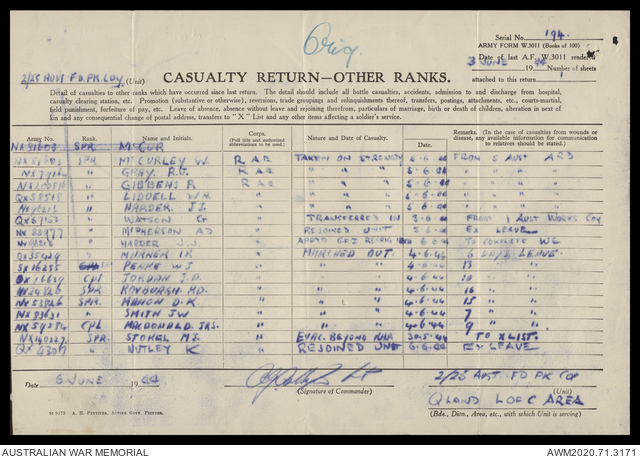 Orig.
Serial No. 194
ARMY FORM W.3011 (Books of 100)
Date of last A.F. W.3011 rendered
3 JUNE 19 44 Number of sheets
attached to this return 1
2/25 AUST FD.PK.COY (Unit)
CASUALTY RETURN—OTHER RANKS.
Detail of casualties to other ranks which have occurred since last return. The detail should include all battle casualties, accidents, admission to and discharge from hospital,
casualty clearing station, etc. Promotion (substantive or otherwise), reversions, trade groupings and relinquishments thereof, transfers, postings, attachments, etc., courts-martial,
field punishment, forfeiture of pay, etc. Leave of absence, absence without leave and rejoining therefrom, particulars of marriage, birth or death of children, alteration in next of
kin and any consequential change of postal address, transfers to "X" List and any other items affecting a soldier's service.
Army No. Rank. Name and Initials. Corps. (Full title and authorized abbreviations to be used.) Nature and Date of Casualty. Date. Remarks. (In the case of casualties from wounds or disease, any available information for communication to relatives should be stated.)
SPR
SPR McCURLEY W. R A E TAKEN ON STRENGTH 5.6.44 FROM 5 AUST ARD
" GRAY. R.J. R A E " " " 5.6.44 " "
" GIBBENS R R A E " " " 5.6.44 " "
" LIDDELL W.H. " " " " 5.6.44 " "
" HARDER J.J. " " " " 5.6.44 " "
" WATSON G " TRANSFERRED IN FROM 1 AUST WORKS COY
" McPHERSON A D " REJOINED UNIT EX LEAVE
" HARDER J.J. " TO COMPLETE
QX35429 " " MARCHED OUT. 4.6.44 6 DAYS LEAVE.
SX16255 PENNE W J " " " 4.6.44 13 " "
CPL JORDAN J.D. " " " 4.6.44 10 " "
SPR. M.D. " " " 4.6.44 16 " "
SPR. D.K. " " " 4.6.44 15 " "
" SMITH J W " " " 4.6.44 7 " "
CPL MACDONALD. JAS. " " " 4.6.44 9 " "
SPR. STOKES M.J. " EVAC. BEYOND 30.5.44 TO X LIST.
" NUTLEY K " REJOINED UNIT 6.6.44 EX LEAVE
Date 6 JUNE 19 44
(Signature of Commander)
2/25 AUST. FD PK COY
(Unit)
QLAND L OF C AREA
(Bde., Divn., Area, etc., with which Unit is serving)
A. H. PETTIFER, ACTING GOVT. PRINTER.
AUSTRALIAN WAR MEMORIAL
AWM2020.71.3171